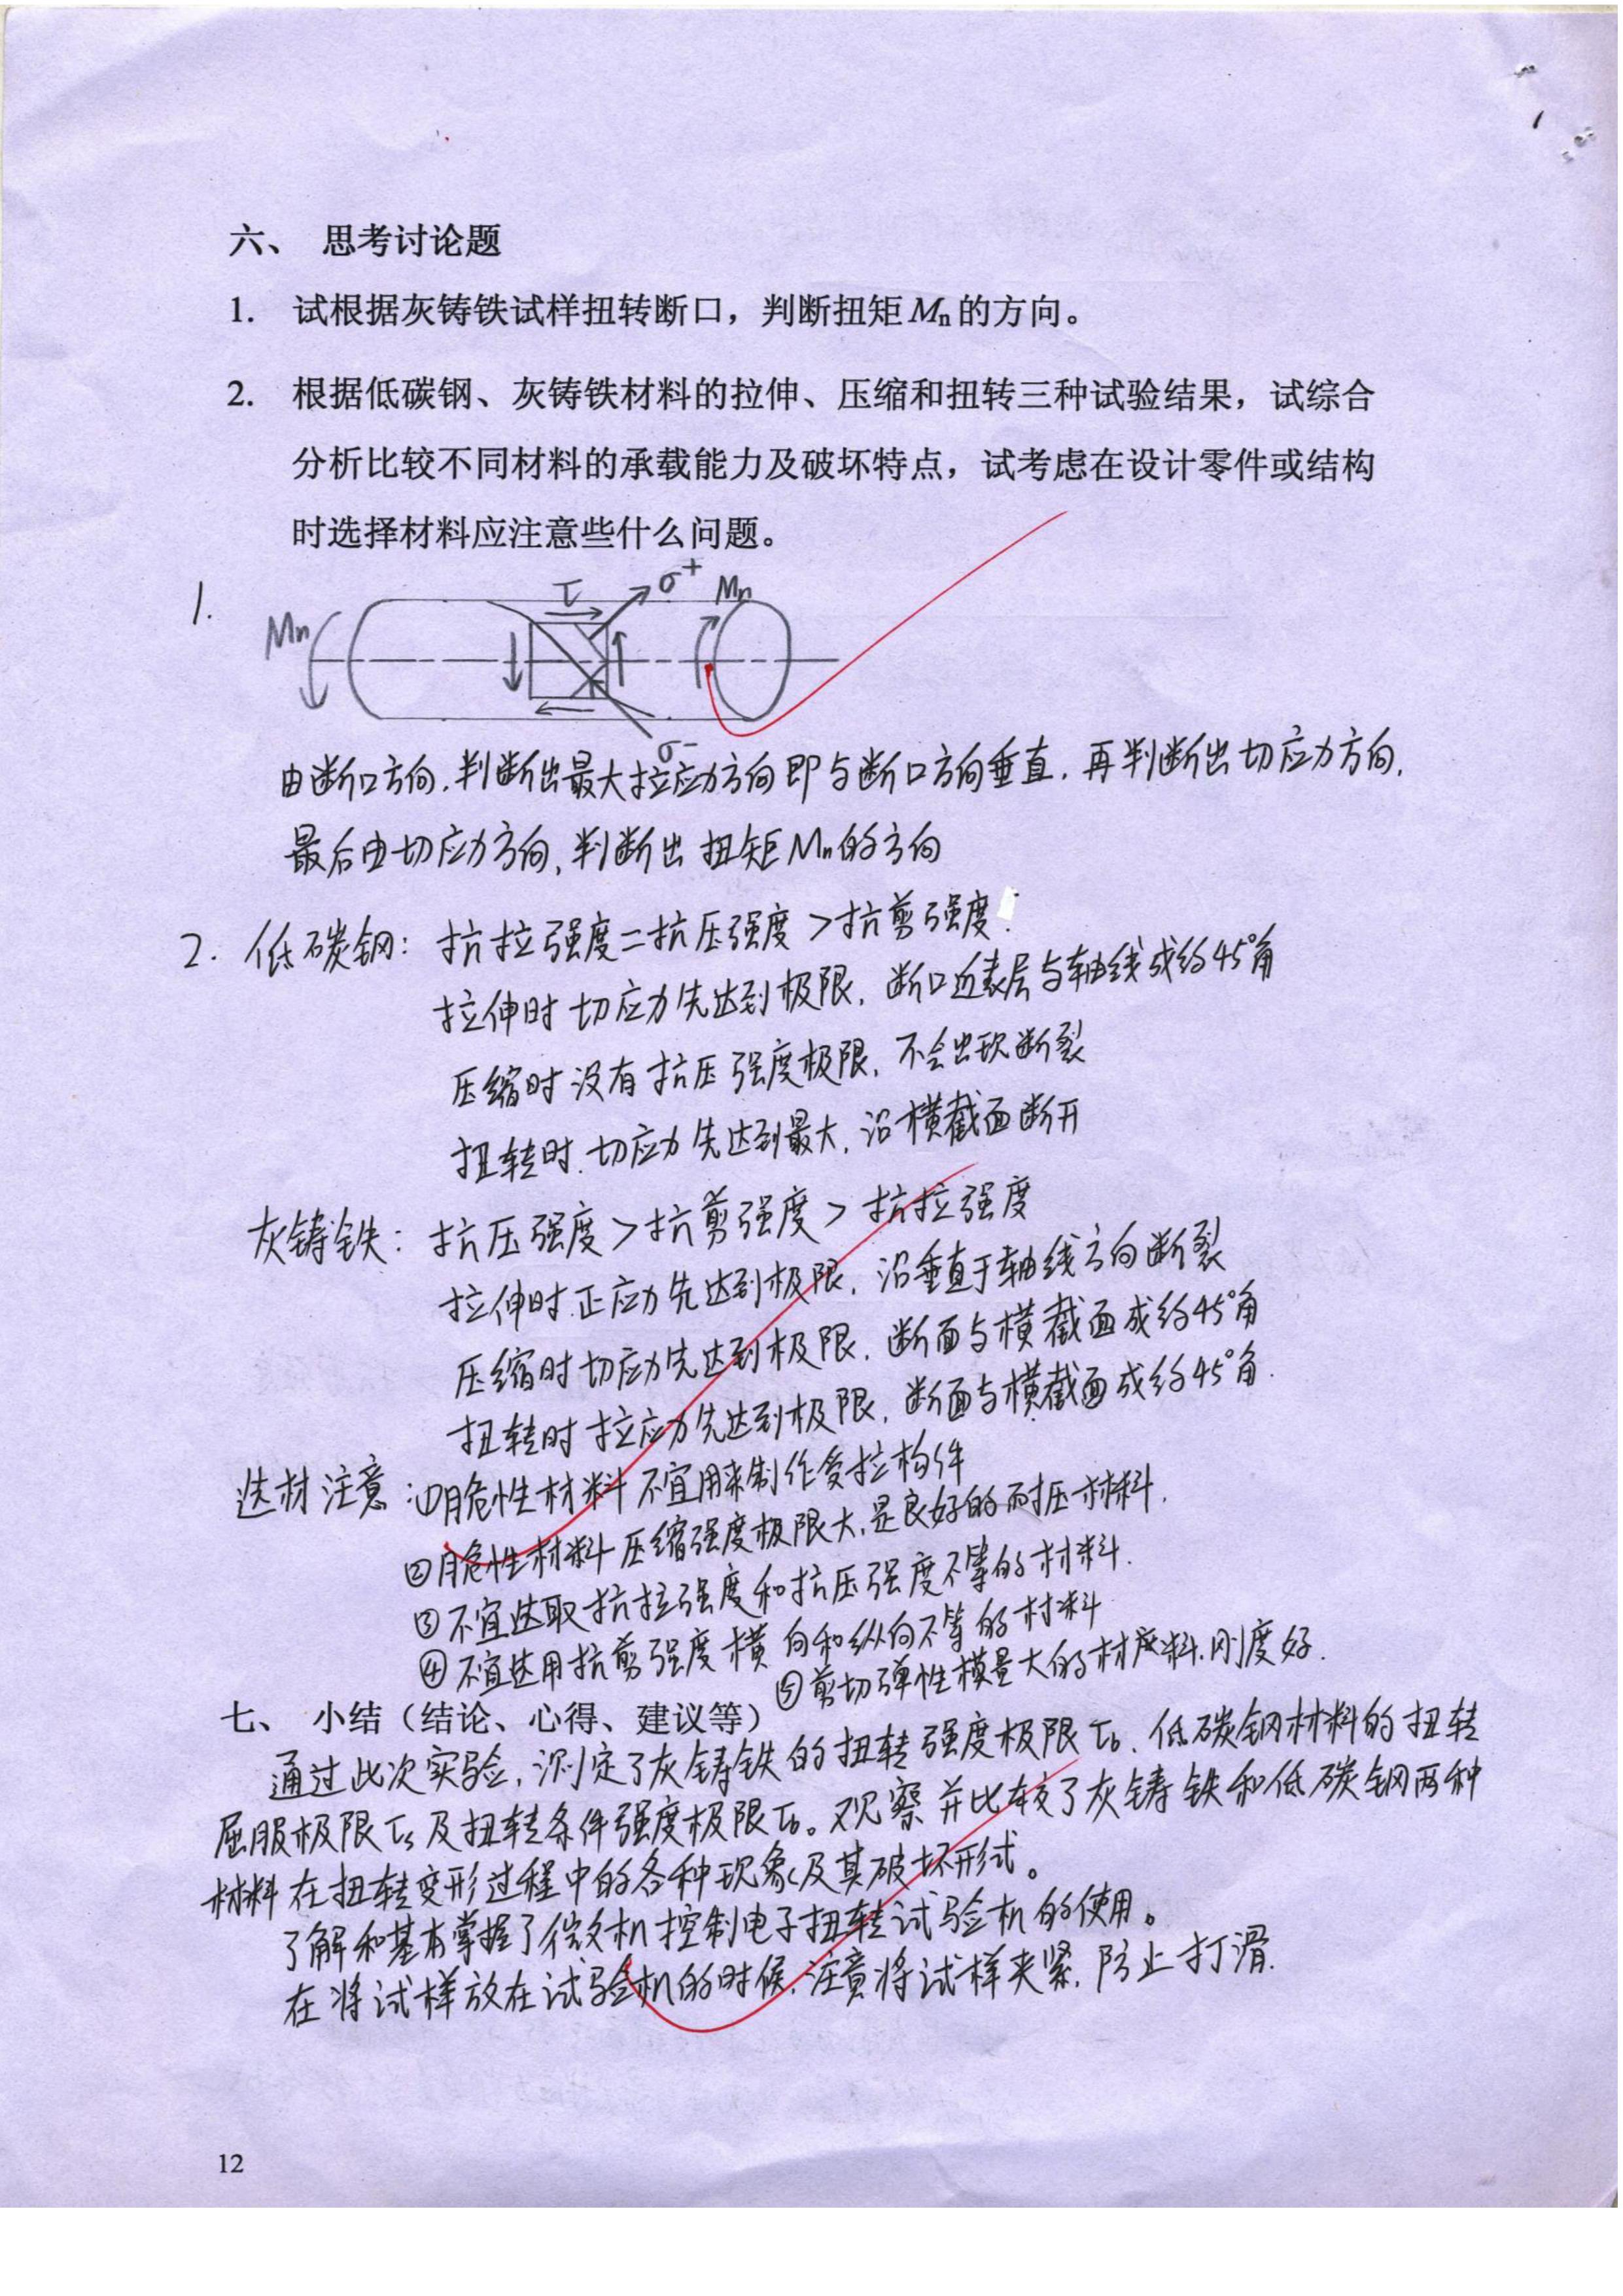 六、 思考讨论题
1. 试根据灰铸铁试样扭转断口，判断扭矩Mn的方向。
2. 根据低碳钢、灰铸铁材料的拉伸、压缩和扭转三种试验结果，试综合
分析比较不同材料的承载能力及破坏特点，试考虑在设计零件或结构
时选择材料应注意些什么问题。
1.
τ σ+ Mn
Mn
σ-
由断口方向,判断出最大拉应力方向即与断口方向垂直,再判断出切应力方向,
最后由切应力方向,判断出扭矩Mn的方向
2. 低碳钢: 抗拉强度=抗压强度>抗剪强度.
拉伸时切应力先达到极限,断口近表层与轴线成约45°角
压缩时没有抗压强度极限,不会出现断裂
扭转时.切应力先达到最大,沿横截面断开
灰铸铁: 抗压强度>抗剪强度>抗拉强度
拉伸时.正应力先达到极限,沿垂直于轴线方向断裂
压缩时切应力先达到极限,断面与横截面成约45°角
扭转时拉应力先达到极限,断面与横截面成约45°角.
选材注意:①脆性材料不宜用来制作受拉构件
②脆性材料压缩强度极限大,是良好的耐压材料.
③不宜选取抗拉强度和抗压强度不等的材料.
④不宜选用抗剪强度横向和纵向不等的材料
⑤剪切弹性模量大的材料.刚度好.
七、 小结（结论、心得、建议等）
通过此次实验,测定了灰铸铁的扭转强度极限τb、低碳钢材料的扭转
屈服极限τs及扭转条件强度极限τb。观察并比较了灰铸铁和低碳钢两种
材料在扭转变形过程中的各种现象及其破坏形式。
了解和基本掌握了微机控制电子扭转试验机的使用。
在将试样放在试验机的时候,注意将试样夹紧,防止打滑.
12